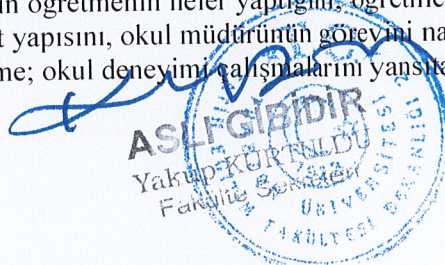 n öğretmenin neler yaptığını, öğretmc
t yapısını, okul müdürünün görevini na
me; okul deneyimi çalışmalarını yansıta
ASLI GİBİDİR
Yakup KURTULDU
Fakülte Sekreteri
ÜNİVERSİTESİ
FAKÜLTESİ DEKANLIĞI